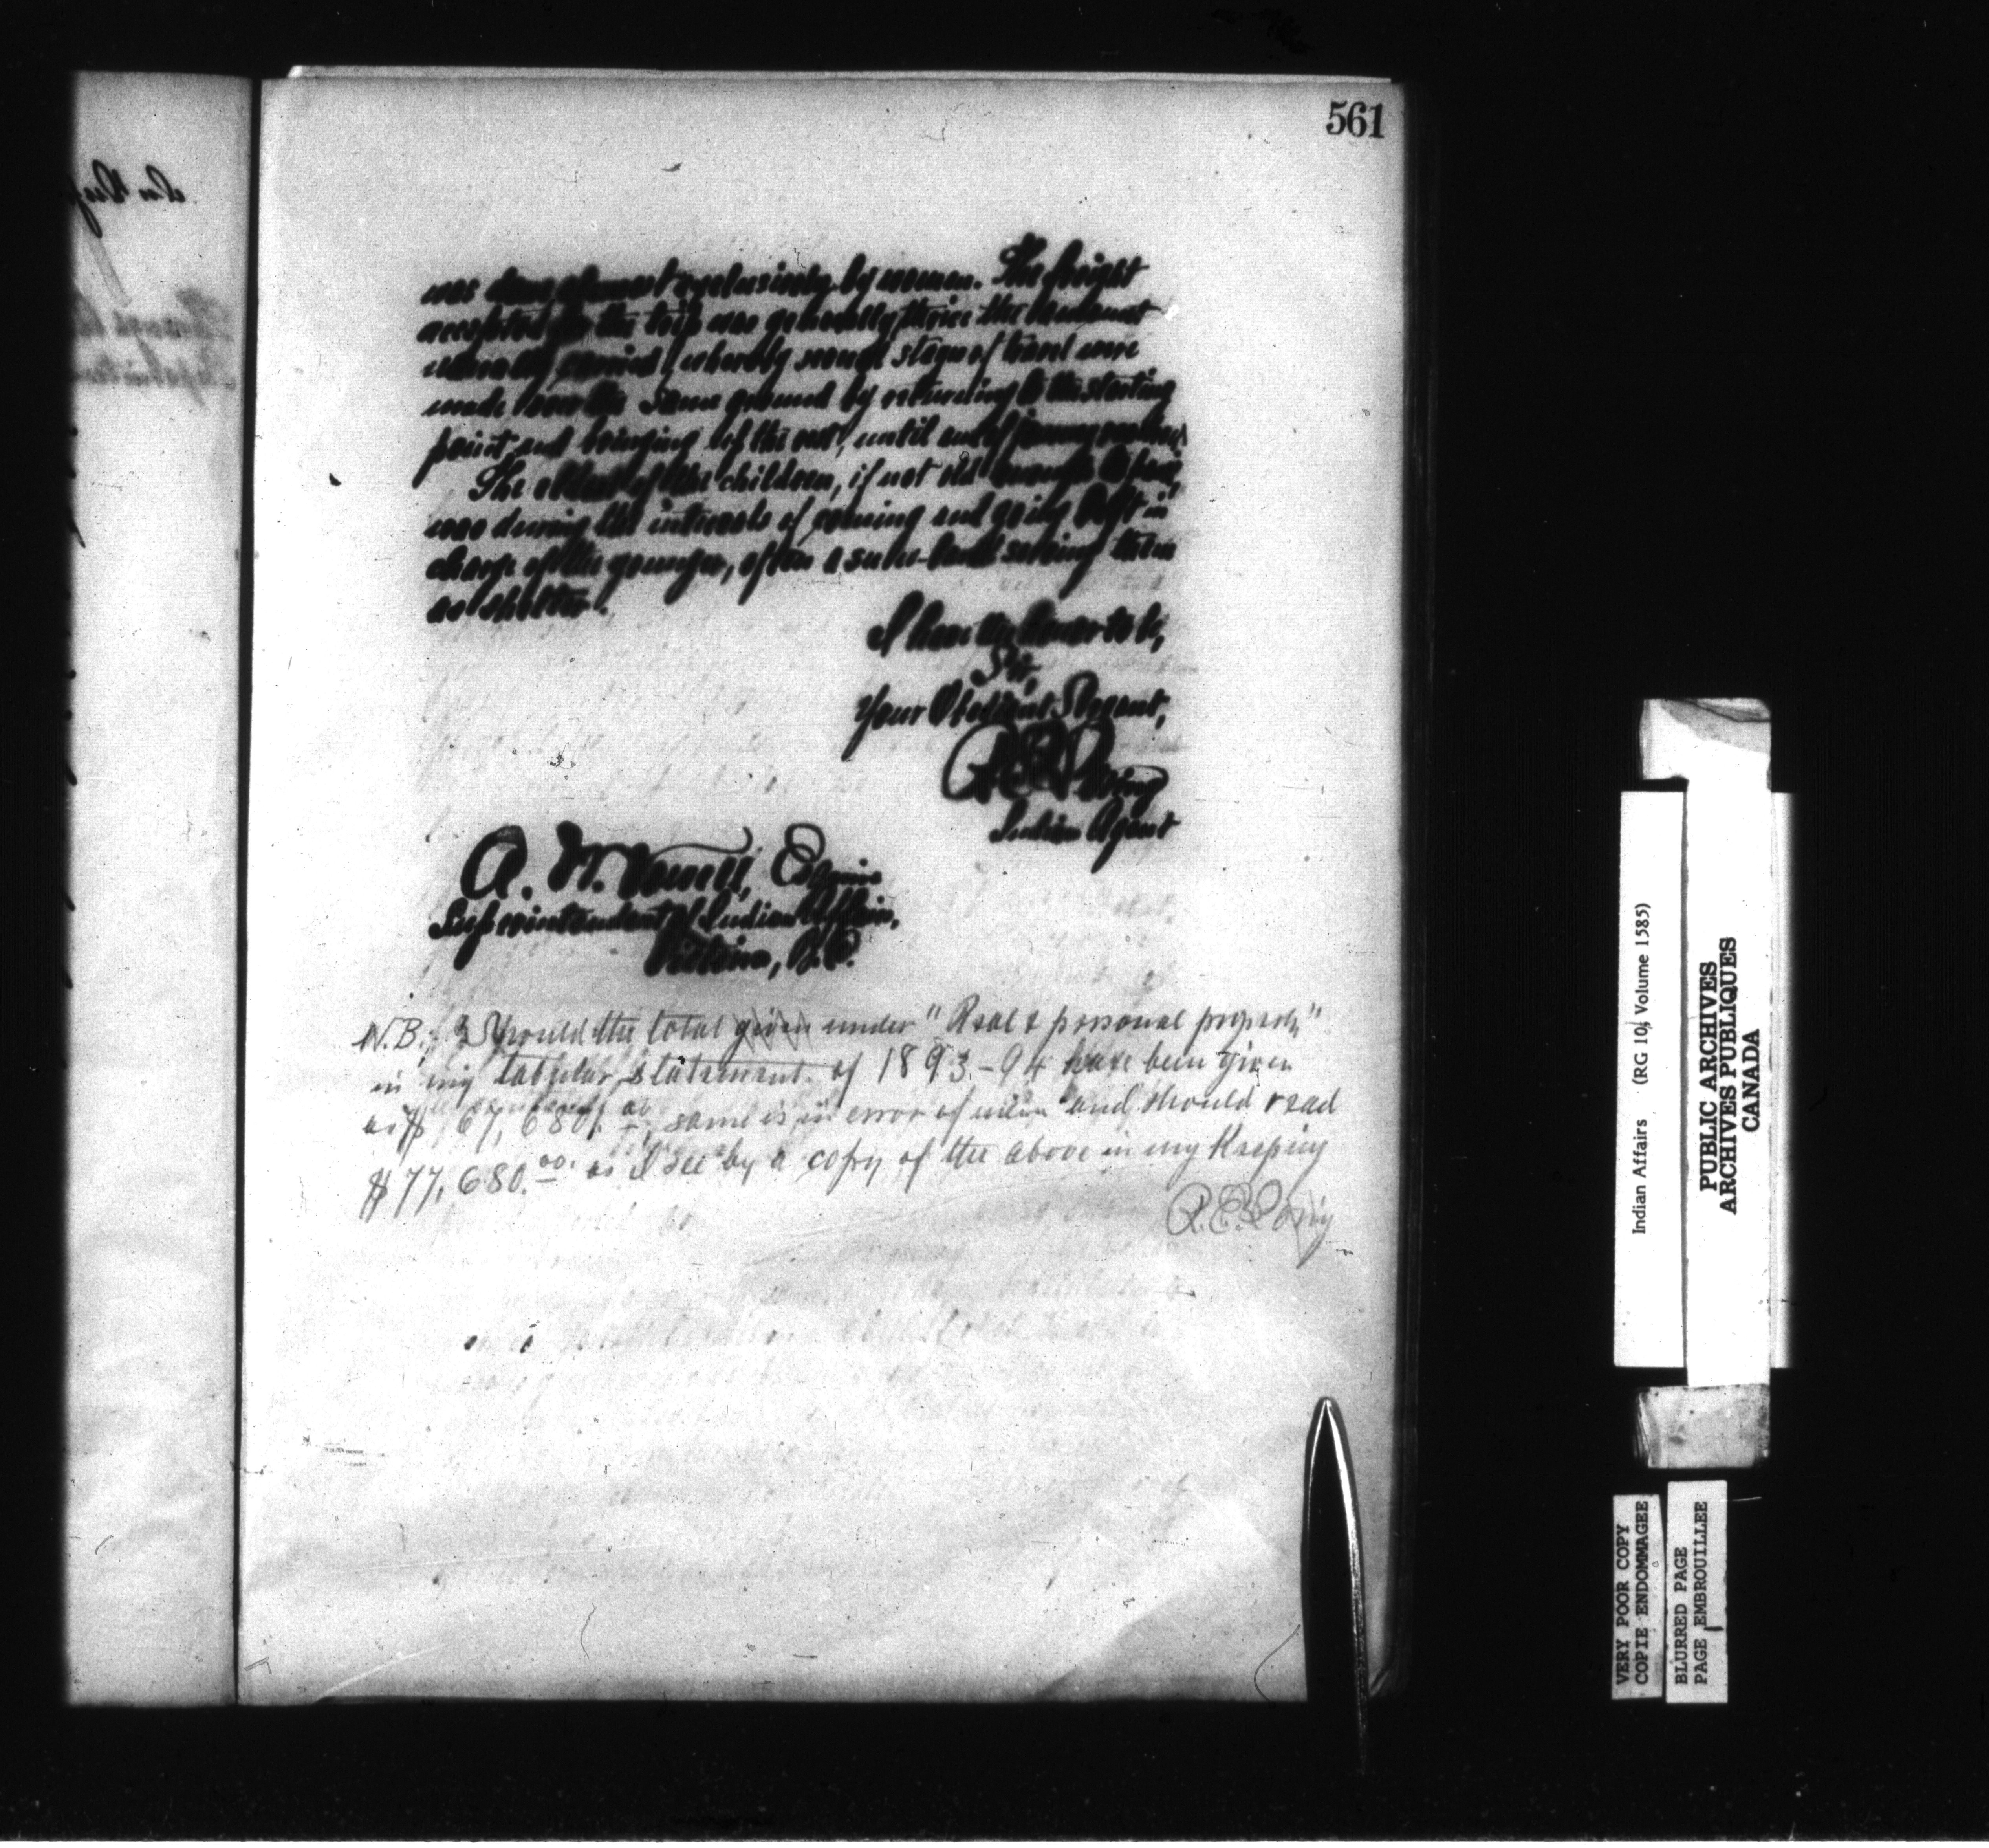 561
was done almost exclusively by women. The freight
accepted for the trip was generally thrice the amount
usually carried, whereby several stages of travel were
made over the same ground by returning to the starting
point and bringing of the rest, until end of journey reached.
The eldest of the children, if not old enough to pack,
was during the intervals of coming and going left in
charge of the younger, often a snow-bank serving them
as shelter.
I have the honor to be,
Sir,
Your Obedient Servant,
R. E. Loring
Indian Agent
A. W. Vowell, Esquire
Superintendent of Indian Affairs,
Victoria, B.C.
N.B.; Should the total given under "Real & personal property"
in my tabular statement of 1893-94 have been given
as $67,680.00, same is in error of mine and should read
$77,680.00 as I see by a copy of the above in my keeping
R. E. Loring
Indian Affairs (RG 10, Volume 1585)
PUBLIC ARCHIVES
ARCHIVES PUBLIQUES
CANADA
VERY POOR COPY
COPIE ENDOMMAGEE
BLURRED PAGE
PAGE EMBROUILLEE